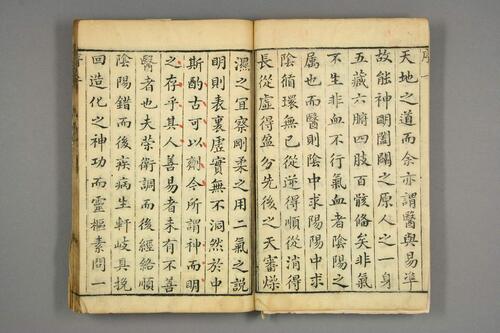 天地之道而余亦謂醫與易準
故能神明闔闢之原人之一身
五藏六腑四肢百骸俻矣非氣
不生非血不行氣血者陰陽之
属也而醫則陰中求陽陽中求
陰循環無已從逆得順從消得
長從虛得盈分先後之天審燥
濕之宜察剛柔之用二氣之說
明則表裏虛實無不洞然於中
斯酌古可以劑今所謂神而明
之存乎其人善易者未有不善
醫者也夫荣衛調而後經絡順
陰陽錯而後疾病生軒岐具挽
回造化之神功而靈樞素問一